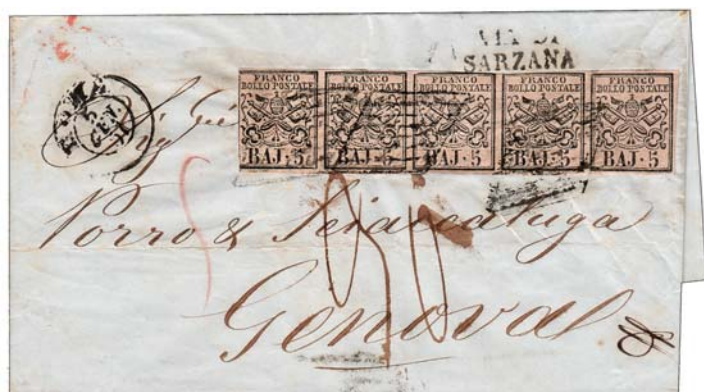 VIA DI
SARZANA
ROMA
5
GEN
FRANCO
BOLLO POSTALE
BAJ·5
FRANCO
BOLLO POSTALE
BAJ·5
FRANCO
BOLLO POSTALE
BAJ·5
FRANCO
BOLLO POSTALE
BAJ·5
FRANCO
BOLLO POSTALE
BAJ·5
Porro &
Genova